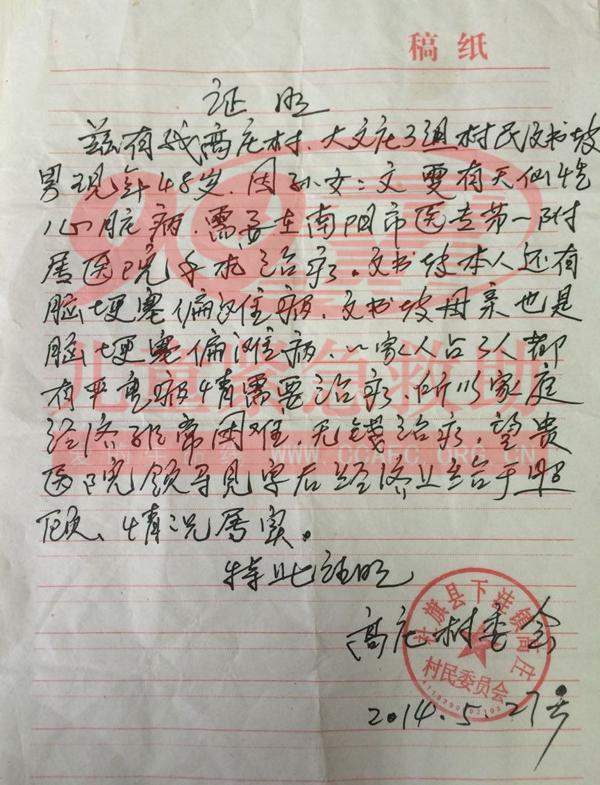 稿纸
证明
兹有我高庄村,大文庄3组村民文书坡
男现年48岁,因孙女:文雯有先天性
心脏病,需要在南阳市医专第一附
属医院手术治疗。文书坡本人还有
脑埂塞偏滩病,文书坡母亲也是
脑埂塞偏滩病,一家人占3人都
有严重病情需要治疗,所以家庭
经济非常困难,无钱治疗,望贵
医院领导见字后经济上给予照
顾、情况属实。
特此证明
高庄村委会
2014.5.27号
旗县下洼镇高庄
村民委员会
99
儿童紧急救助
WWW.CCAFC.ORG.CN